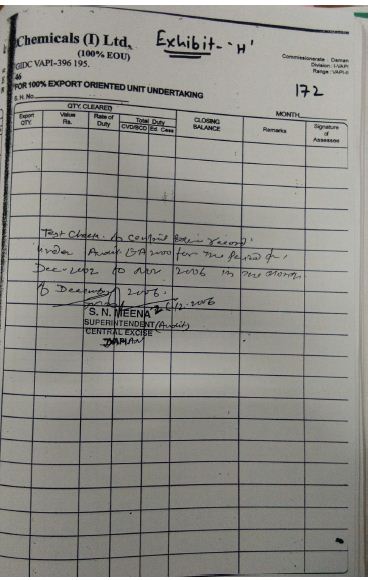 Chemicals (I) Ltd,
Exhibit-'H'
(100% EOU)
GIDC VAPI-396 195.
Commissionerate : Daman
Division : I-VAPI
Range : VAPI-II
46
FOR 100% EXPORT ORIENTED UNIT UNDERTAKING
172
S. H. No.
MONTH
QTY. CLEARED
Export QTY.
Value Rs.
Rate of Duty
Total Duty
CVD/BCD Ed. Cess
CLOSING BALANCE
Remarks
Signature of Assessee
Test Check of central Excise record
under Audit EA 2000 for the period of
Dec-2002 to Nov 2006 in the month
of December 2006.
12-2006
S. N. MEENA
SUPERINTENDENT (Audit)
CENTRAL EXCISE